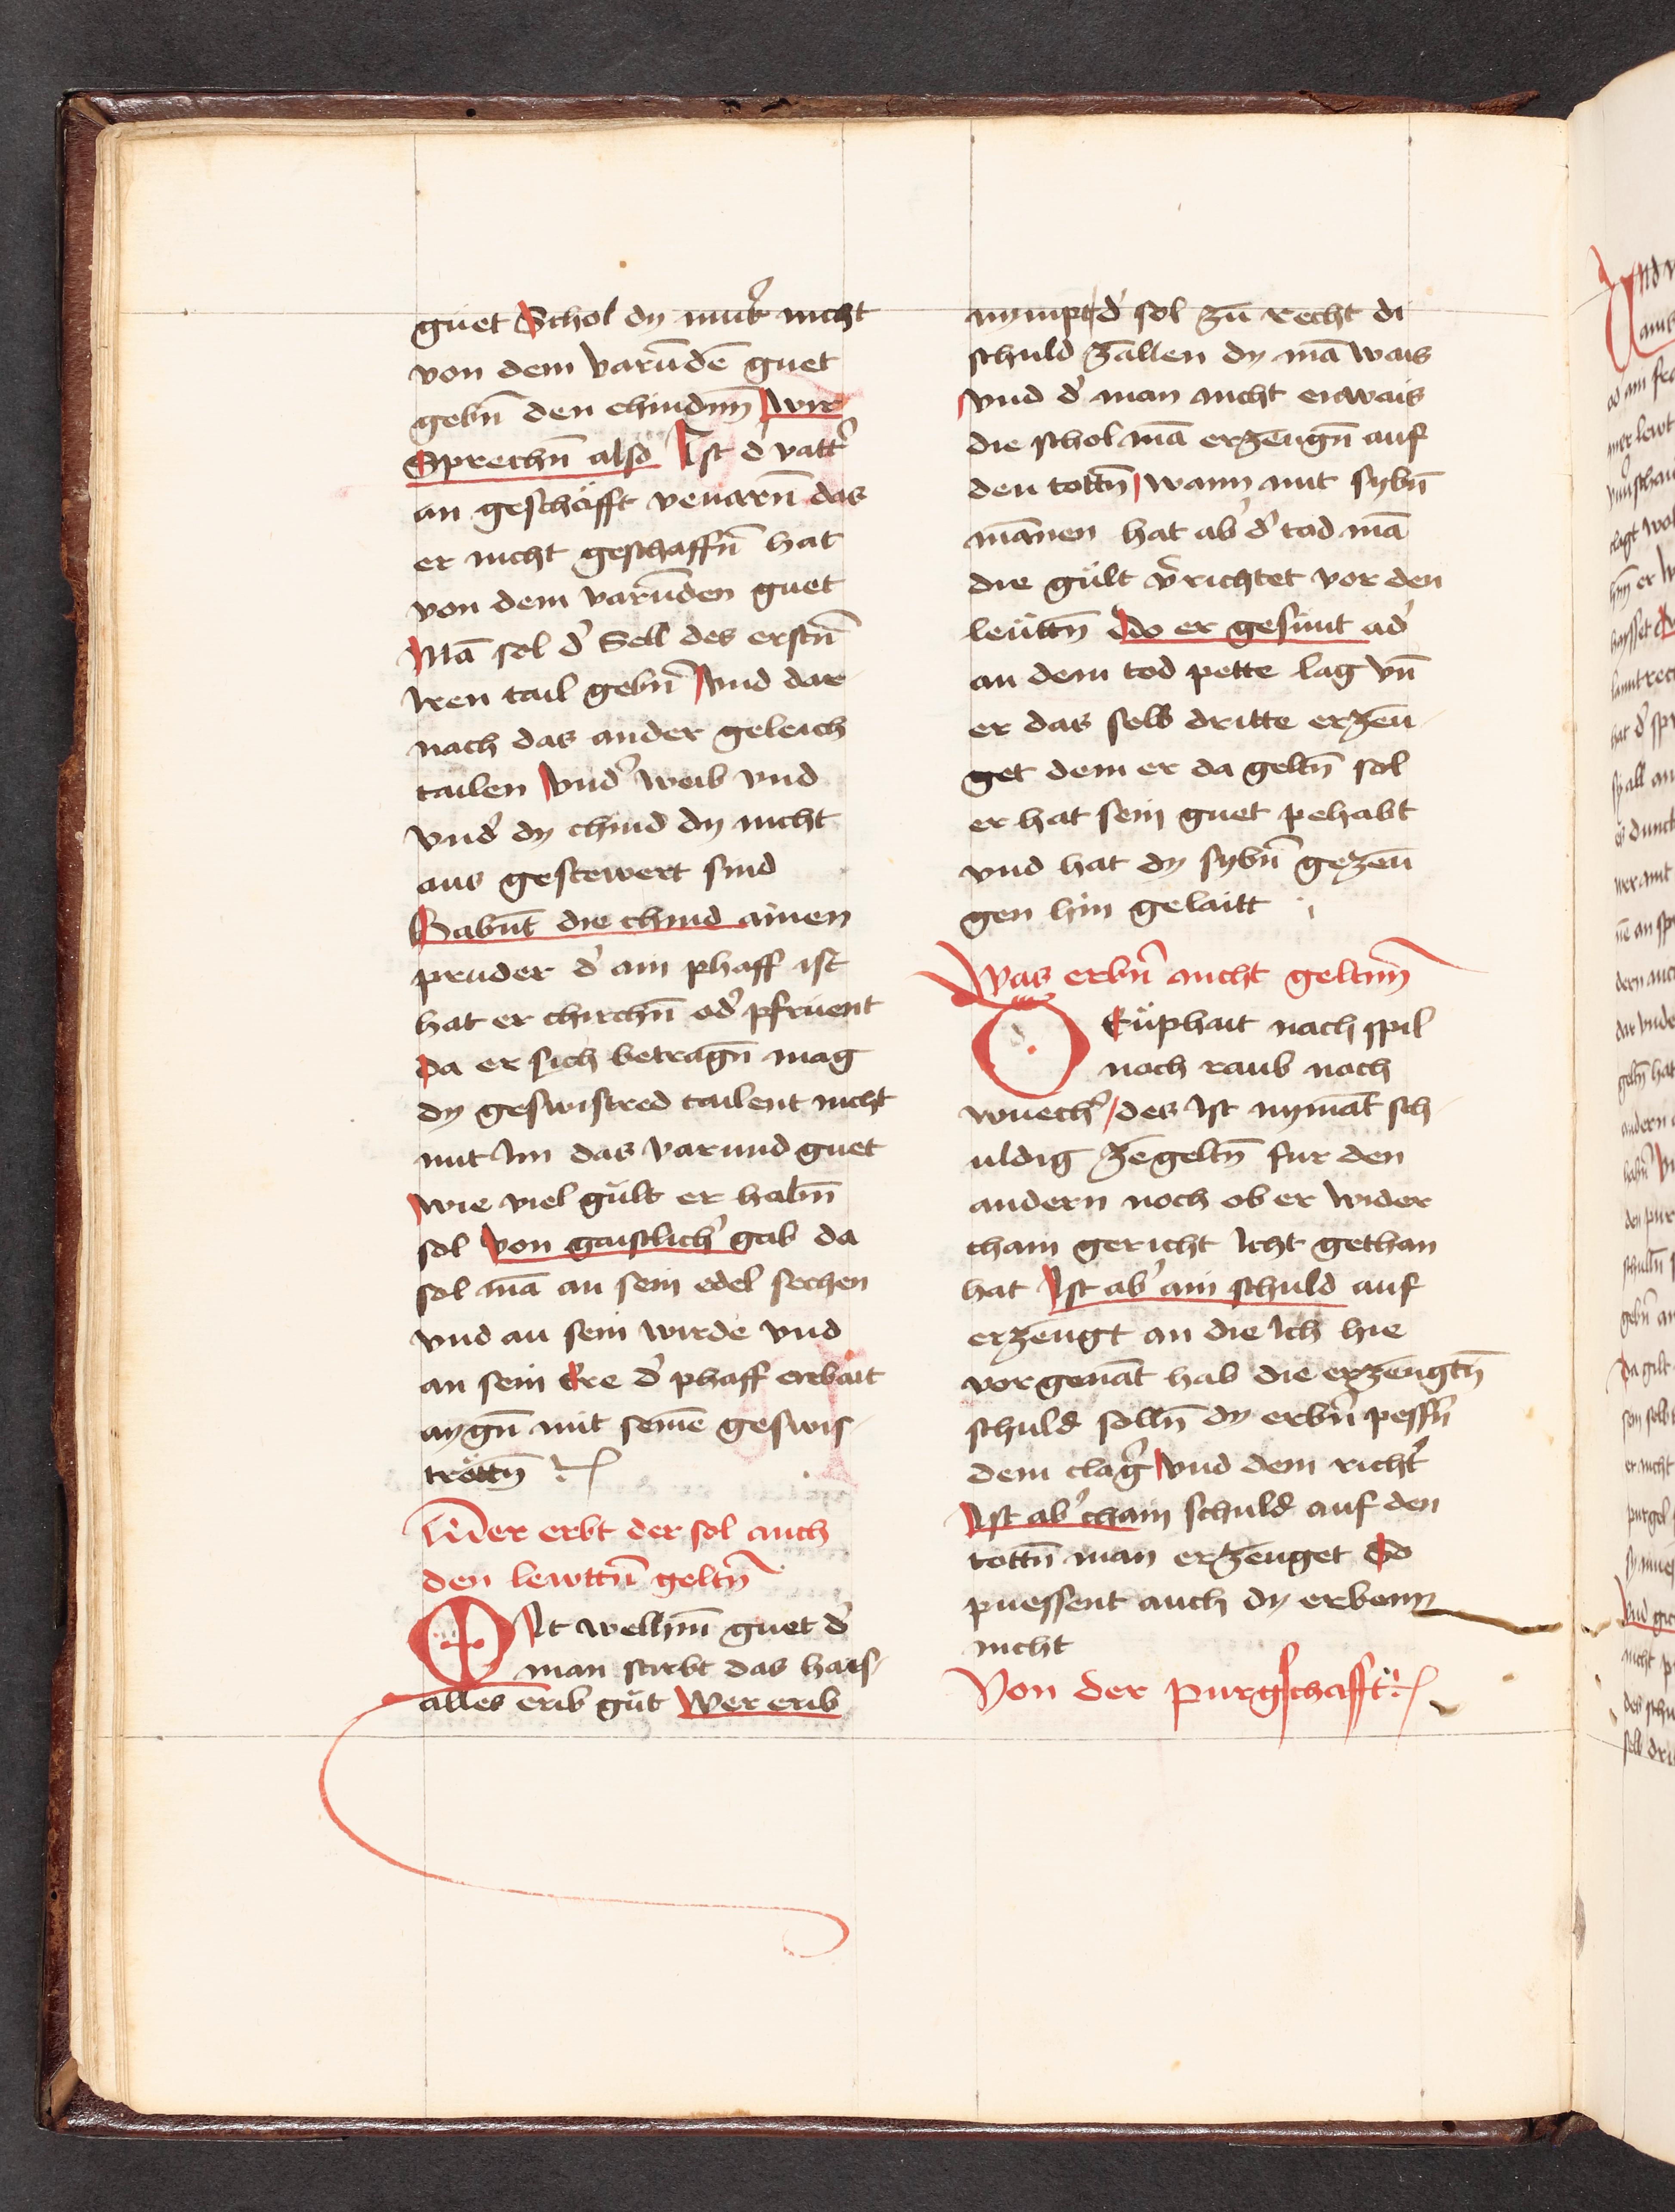 guet Schol dy mutͬ nicht
von dem varūdē guet
gebn̄ den chindnn̄ wir
Sprechn̄ also Ist d̕ vatt̕
an geschäfft veruarn̄ das
er nicht geschaffn̄ hat
von dem varūden guet
Mā sol d̕ Sell des erstn̄
Iren tail gebn̄ Vnd dar
nach das ander geleich
tailen Vnd̕ weib vnd
vnd̕ dy chind dy nicht
aus gestewert sind
Habn̄t die chind ainen
pruder d̕ ain phaff ist
hat er chirchn̄ od̕ pfrüent
da er sich betragn̄ mag
dy geswistred tailent nicht
mit Im das varund guet
wie viel gült er habn̄
sol von gaistlich̕ gab da
sol mā an sein edel sechen
vnd an sein wirde vnd
an sein Ere d̕ phaff erbait
aygn̄ mit seinē geswis-
tröttn̄
Wer erbt der sol auch
den lewttn̄ geltn̄
Mit welhm̄ guet d̕
man stirbt das hais-
alles erib güt Wer erib
nympt d̕ sol zū recht di
schuld zallen dy mā wais
vnd d̕ man nicht enwais
die schol mā erzeugn̄ auf
den tottn̄ wann mit sybn̄
mānen hat ab̕ d̕ tod mā
die gült v̕richtet vor den
leüttn̄ do er gesunt ad̕
an dem tod pette lag vn̄
er das selb dritte erzeu-
get dem er da geltn̄ sol
er hat sein guet pehabt
vnd hat dy sybn̄ gezeu
gen hin gelaitt
Was erbn̄ nicht geltnn̄
DEüphait nach spil
noch raub noch
wuech̕ des ist nymāt sch-
uldig zegeltn̄ fur den
andern noch ob er wider
cham gericht Icht gethan
hat Ist ab̕ ain schuld auf
erzeugt an die Ich hie
vor genāt hab die erzeugtn̄
schuld solln̄ dy erbn̄ pessn̄
dem clag̕ vnd dem richt̕
Ist ab̕ cham schuld auf den
tottn̄ man erzeuget So
puessent auch dy erbenn
nicht
Von der purgschafft